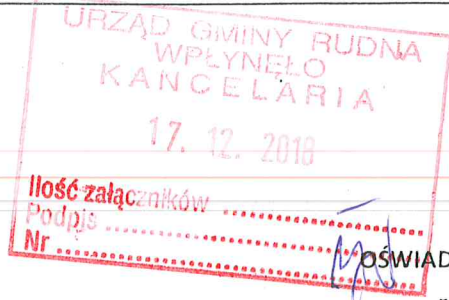 URZĄD GMINY RUDNA
WPŁYNĘŁO
KANCELARIA
17. 12. 2018
Ilość załączników ....................
Podpis ....................
Nr ....................
OŚWIAD